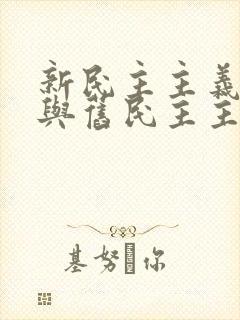 新民主主義
與舊民主主
基努 你